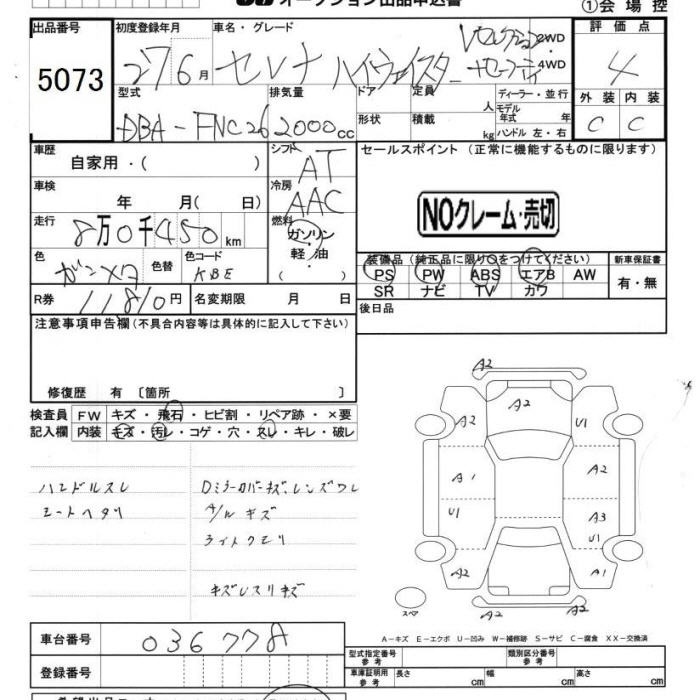 オークション出品申込書
①会場控
出品番号 初度登録年月 車名・グレード 評価点
5073 27 6月 セレナ ハイウェイスター Vセレクション +セーフティ 2WD 4WD 4
外装 内装
C C
型式 排気量 ドア 定員 ディーラー・並行
DBA-FNC26 2000cc 形状 積載 人 kg モデル年式 年 ハンドル 左・右
車歴 シフト セールスポイント (正常に機能するものに限ります)
自家用・( ) AT
車検 冷房
年 月( 日) AAC
NOクレーム・売切
走行 燃料
8万0千450km ガソリン
軽・油
・( )
色 色替 色コード
ガンメタ KBE
装備品 (純正品に限り○をつけてください) 新車保証書
PS PW ABS エアB AW 有・無
SR ナビ TV カワ
R券 11810円 名変期限 月 日
後日品
注意事項申告欄(不具合内容等は具体的に記入して下さい)
修復歴 有 〔箇所 〕
検査員 FW キズ・飛石・ヒビ割・リペア跡・×要
記入欄 内装 キズ・汚レ・コゲ・穴・スレ・キレ・破レ
ハンドルスレ
シートヘタリ
Dミラーカバーキズ、レンズワレ
A/Wキズ
ライトクモリ
キズレスリキズ
A2
A2
A2 U1
A1 A2
U1 A3
U1
A2 A1
A2 A2
スペア
A-キズ E-エクボ U-凹み W-補修跡 S-サビ C-腐食 XX-交換済
車台番号 036778
型式指定番号 参考 類別区分番号 参考
登録番号
車庫証明用 参考 長さ cm 幅 cm 高さ cm